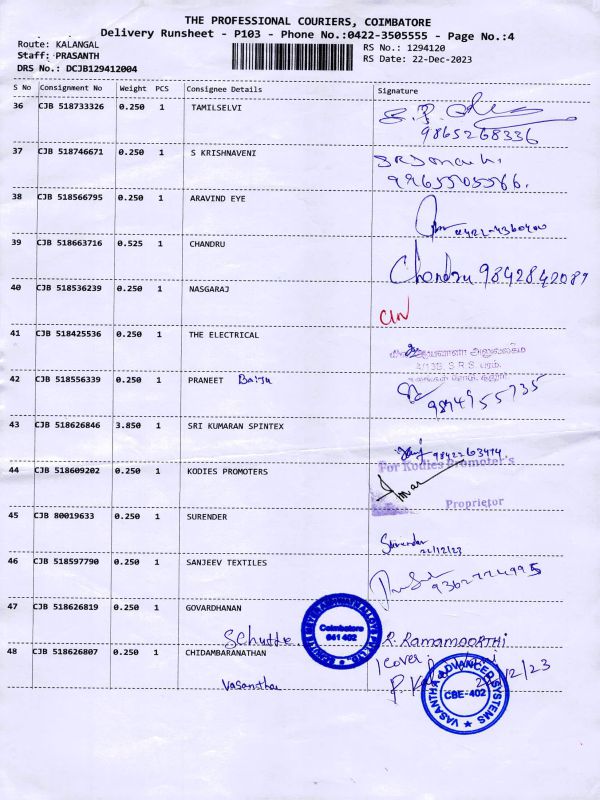 THE PROFESSIONAL COURIERS, COIMBATORE
Delivery Runsheet - P103 - Phone No.:0422-3505555 - Page No.:4
Route: KALANGAL
Staff: PRASANTH
DRS No.: DCJB129412004
RS No.: 1294120
RS Date: 22-Dec-2023
S No Consignment No Weight PCS Consignee Details Signature
36 CJB 518733326 0.250 1 TAMILSELVI
9865268336
37 CJB 518746671 0.250 1 S KRISHNAVENI
9965505586.
38 CJB 518566795 0.250 1 ARAVIND EYE
0422-4360400
39 CJB 518663716 0.525 1 CHANDRU
Chandru 9842842089
40 CJB 518536239 0.250 1 NASGARAJ
41 CJB 518425536 0.250 1 THE ELECTRICAL
42 CJB 518556339 0.250 1 PRANEET Baiju
9894955735
43 CJB 518626846 3.850 1 SRI KUMARAN SPINTEX
9842263474
44 CJB 518609202 0.250 1 KODIES PROMOTERS
For Kodies Promoter's
Proprietor
45 CJB 80019633 0.250 1 SURENDER
Surender
22/12/23
46 CJB 518597790 0.250 1 SANJEEV TEXTILES
9362724995
47 CJB 518626819 0.250 1 GOVARDHANAN
Schutte
Coimbatore
641 402
R. Ramamoorthi
48 CJB 518626807 0.250 1 CHIDAMBARANATHAN
1 Cover
Vasantha
VASANTHA ADVANCED SYSTEMS
CBE-402